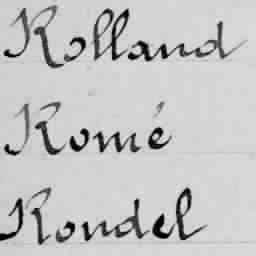 Rolland
Romé
Rondel